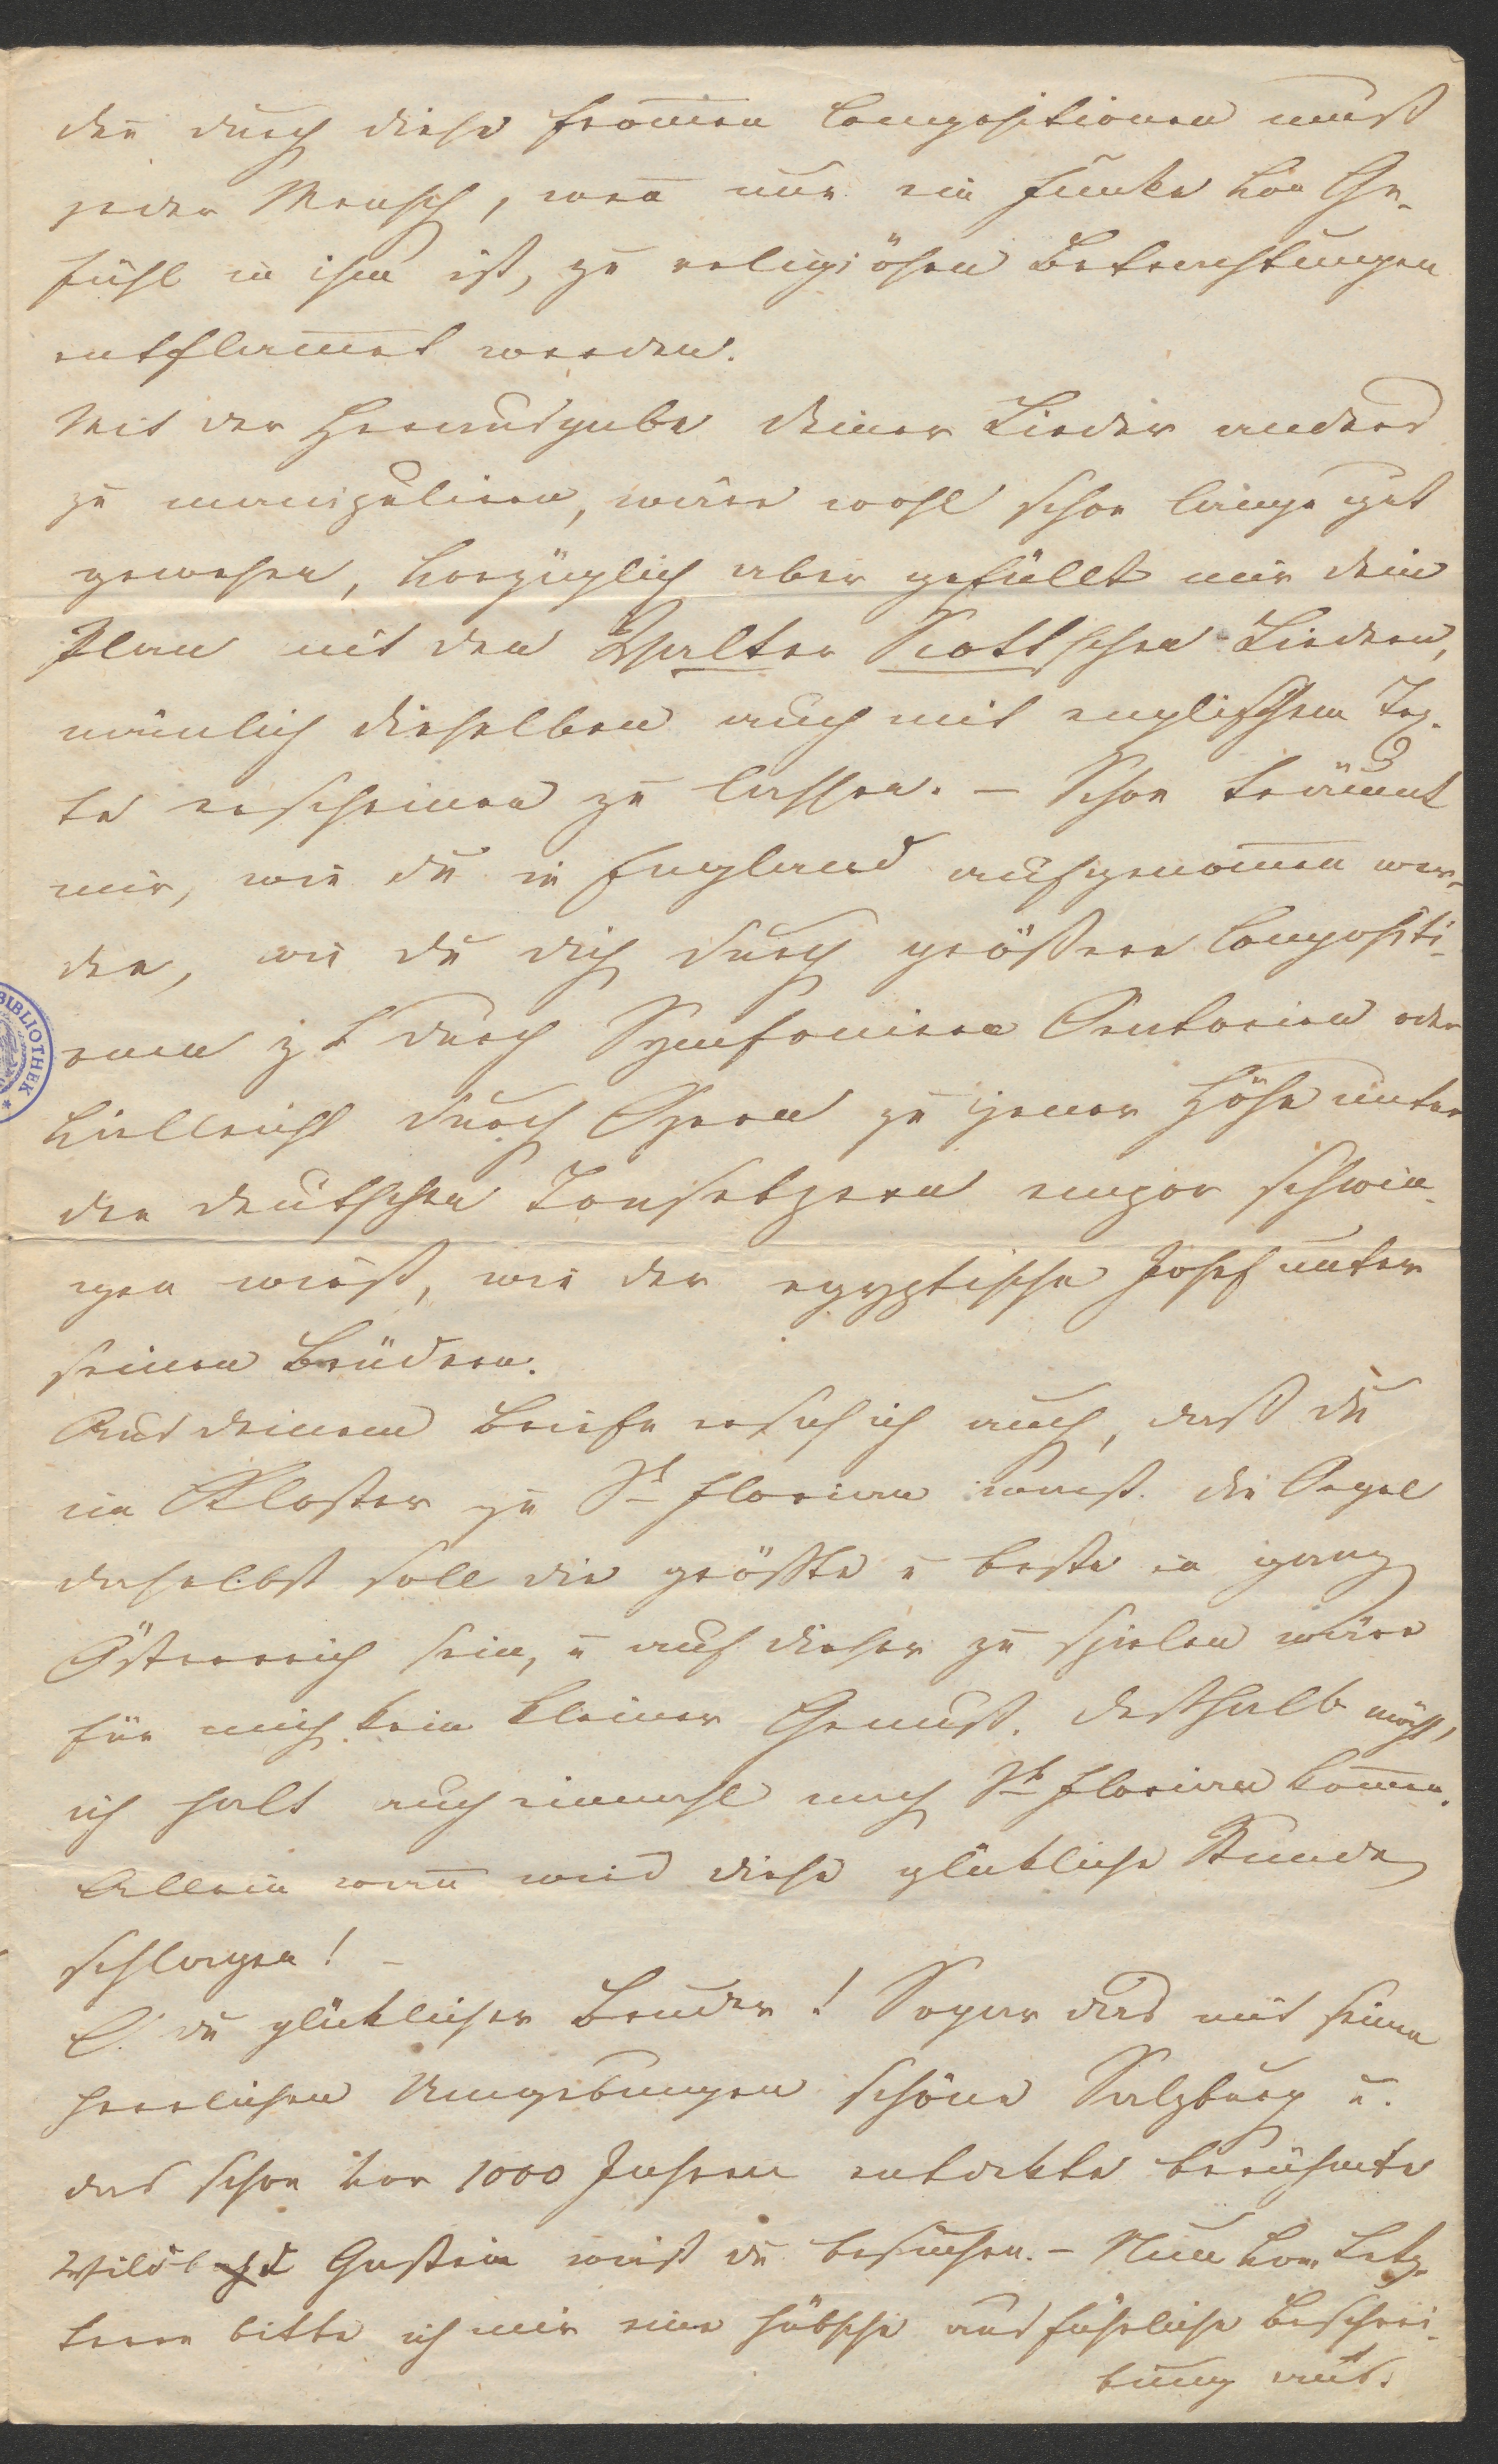 den durch diese from̅en Compositionen muß
jeder Mensch, wen̅ nur ein Funke von Ge-
fühl in ihm ist, zu religiösen Betrachtungen
entflam̅et werden.
Mit der Herausgabe deiner Lieder anders
zu manipuliren, wäre wohl schon lange gut
gewesen, vorzüglich aber gefällt mir dein
Plan mit den Walter Scottschen Liedern,
nämlich dieselben auch mit englischem Tex-
te erscheinen zu lassen. – Schon träumt
mir, wie du in England aufgenom̅en wer-
den, wie du dich durch größere Compositi-
onen z. B durch Symfonieen Oratorien oder
vielleicht durch Opern zu jener Höhe unter
den deutschen Tonsetzern empor schwin-
gen wirst, wie der egyptische Josef unter
seinen Brüdern.
Aus deinem Briefe ersah ich auch, daß du
im Kloster zu St Florian warst. die Orgel
daselbst soll die größte u beste in ganz
Österreich sein, u auf dieser zu spielen wäre
für mich kein kleiner Genuß. deßhalb möcht'
ich halt auch einmahl nach St Florian kom̅en.
Allein wan̅ wird diese glükliche Stunde
schlagen! –
O! du glüklicher Bruder! Sogar das mit seinen
herrlichen Umgebungen schöne Salzburg u.
das schon vor 1000 Jahren entdekte berühmte
Wildb Gastein wirst du besuchen. – Nun von Letz-
teren bitte ich mir eine hübsche ausführliche Beschrei-
bung aus.
BIBLIOTHEK